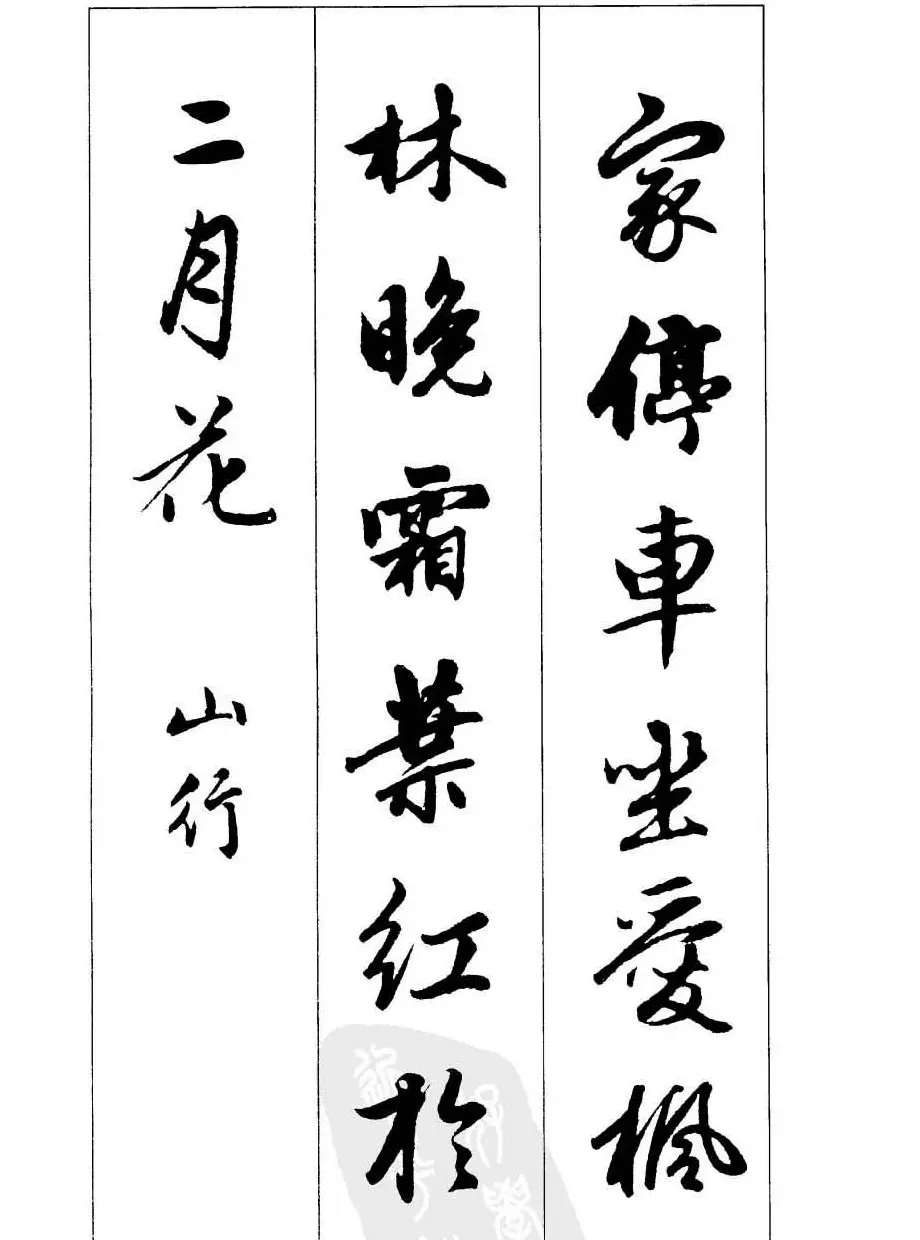 家停車坐愛楓
林晚霜葉紅於
二月花 山行